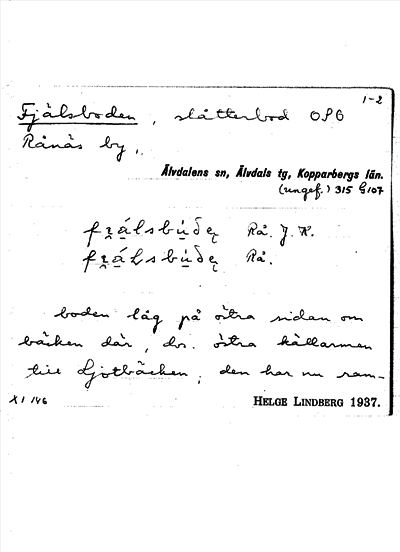 1-2
Fjälsboden, slåtterbod OPG
Rånäs by,
Älvdalens sn, Älvdals tg, Kopparbergs län.
(ungef.) 315 G107
Rå. J. K.
Rå.
boden låg på östra sidan om
bäcken där, dvs. östra källarmen
till Ljotbäcken; den har nu ram-
XI 146
HELGE LINDBERG 1937.